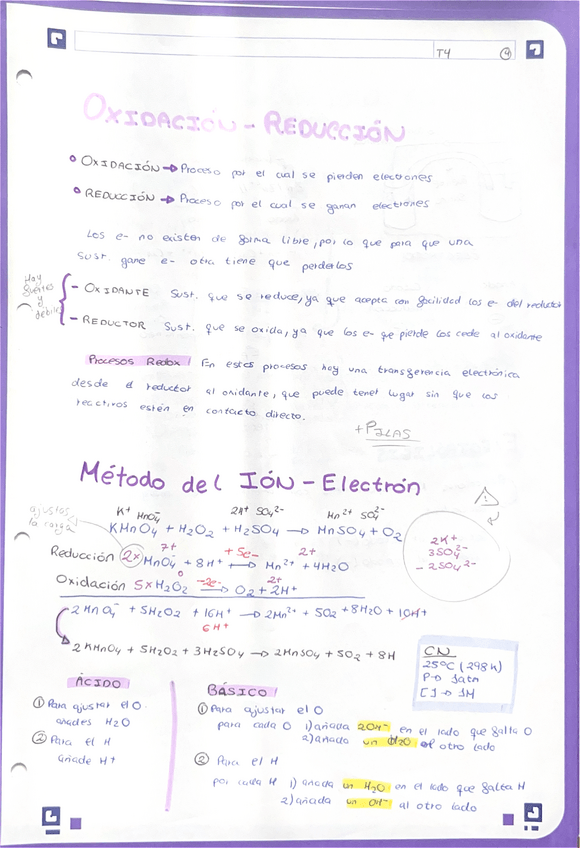 T4 4
OXIDACIÓN - REDUCCIÓN
• OXIDACIÓN → Proceso por el cual se pierden electrones
• REDUCCIÓN → Proceso por el cual se ganan electrones
Los e- no existen de forma libre, por lo que para que una
sust. gane e- otra tiene que perderlos
Hay fuertes y débiles
- OXIDANTE Sust. que se reduce, ya que acepta con facilidad los e- del reductor
- REDUCTOR Sust. que se oxida, ya que los e- que pierde los cede al oxidante
Procesos Redox En estos procesos hay una transferencia electrónica
desde el reductor al oxidante, que puede tener lugar sin que los
reactivos estén en contacto directo.
+ PILAS
Método del IÓN - Electrón
ajustas la carga
K⁺ MnO₄⁻ 2H⁺ SO₄²⁻ Mn²⁺ SO₄²⁻
KMnO₄ + H₂O₂ + H₂SO₄ → MnSO₄ + O₂
7+ +5e- 2+
Reducción 2x MnO₄⁻ + 8H⁺ → Mn²⁺ + 4H₂O
0 -2e- 2+
Oxidación 5x H₂O₂ → O₂ + 2H⁺
2K⁺
3SO₄²⁻
- 2SO₄²⁻
2MnO₄⁻ + 5H₂O₂ + 16H⁺ → 2Mn²⁺ + 5O₂ + 8H₂O + 10H⁺
6H⁺
2KMnO₄ + 5H₂O₂ + 3H₂SO₄ → 2MnSO₄ + 5O₂ + 8H
CN
25ºC (298K)
P → 1atm
[ ] → 1M
ÁCIDO
① Para ajustar el O.
añades H₂O
② Para el H
añade H⁺
BÁSICO
① Para ajustar el O
para cada O 1) añada 2OH⁻ en el lado que falta O
2) añado un H₂O al otro lado
② Para el H
por cada H 1) añada un H₂O en el lado que falta H
2) añada un OH⁻ al otro lado